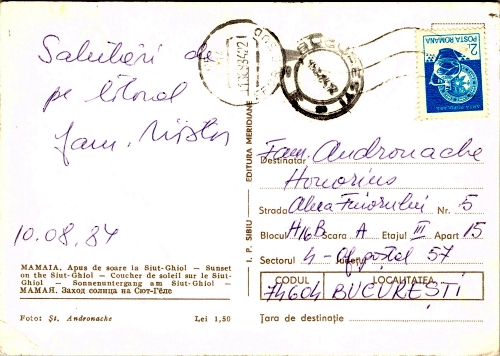 Salutări de
pe litoral
fam.
10.08.84
MAMAIA, Apus de soare la Siut-Ghiol — Sunset
on the Siut-Ghiol — Coucher de soleil sur le Siut-
Ghiol — Sonnenuntergang am Siut-Ghiol —
МАМАЯ. Заход солнца на Сют-Гёле
Foto: Șt. Andronache
Lei 1,50
I. P. SIBIU — EDITURA MERIDIANE
POSTA ROMANA
2
BUCUREȘTI
Destinatar Fam. Andronache
Honorius
Strada Nr. 5
Blocul H16B Scara A Etajul III Apart 15
Sectorul 4 - Of. postal 57
Județul
CODUL LOCALITATEA
74604 BUCUREȘTI
Țara de destinație